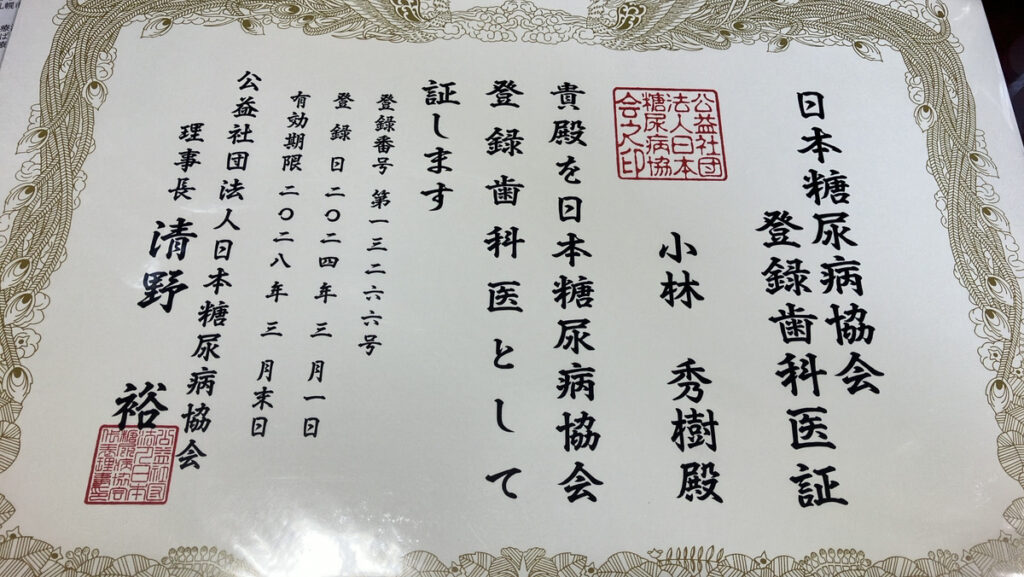 日本糖尿病協会
登録歯科医証
小林 秀樹殿
公益社団
法人日本
糖尿病協
会之印
貴殿を日本糖尿病協会
登録歯科医として
証します
登録番号 第一三二六六号
登録日 二〇二四年 三月一日
有効期限 二〇二八年 三月末日
公益社団法人日本糖尿病協会
理事長 清野 裕